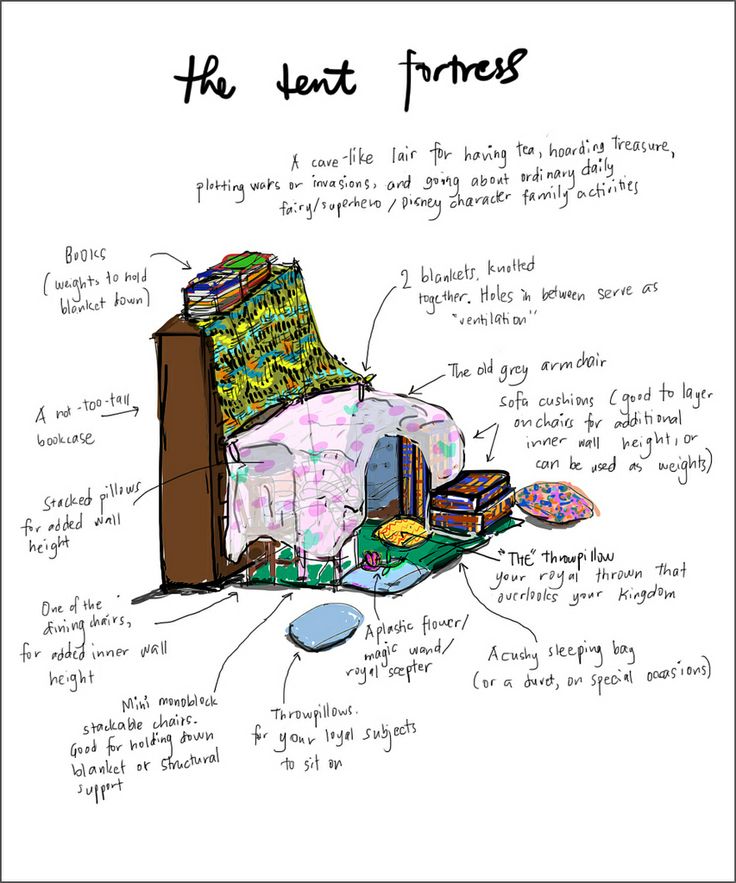 the tent fortress
A cave-like lair for having tea, hoarding treasure,
plotting wars or invasions, and going about ordinary daily
fairy/superhero/Disney character family activities
Books
(weights to hold
blanket down)
2 blankets, knotted
together. Holes in between serve as
"ventilation"
The old grey armchair
Sofa cushions (good to layer
on chairs for additional
inner wall height, or
can be used as weights)
A not-too-tall
bookcase
Stacked pillows
for added wall
height
"THE" throwpillow
your royal thrown that
overlooks your kingdom
One of the
dining chairs,
for added inner wall
height
A plastic flower/
magic wand/
royal scepter
A cushy sleeping bag
(or a duvet, on special occasions)
Mini monoblock
stackable chairs.
Good for holding down
blanket or structural
support
Throwpillows.
for your loyal subjects
to sit on